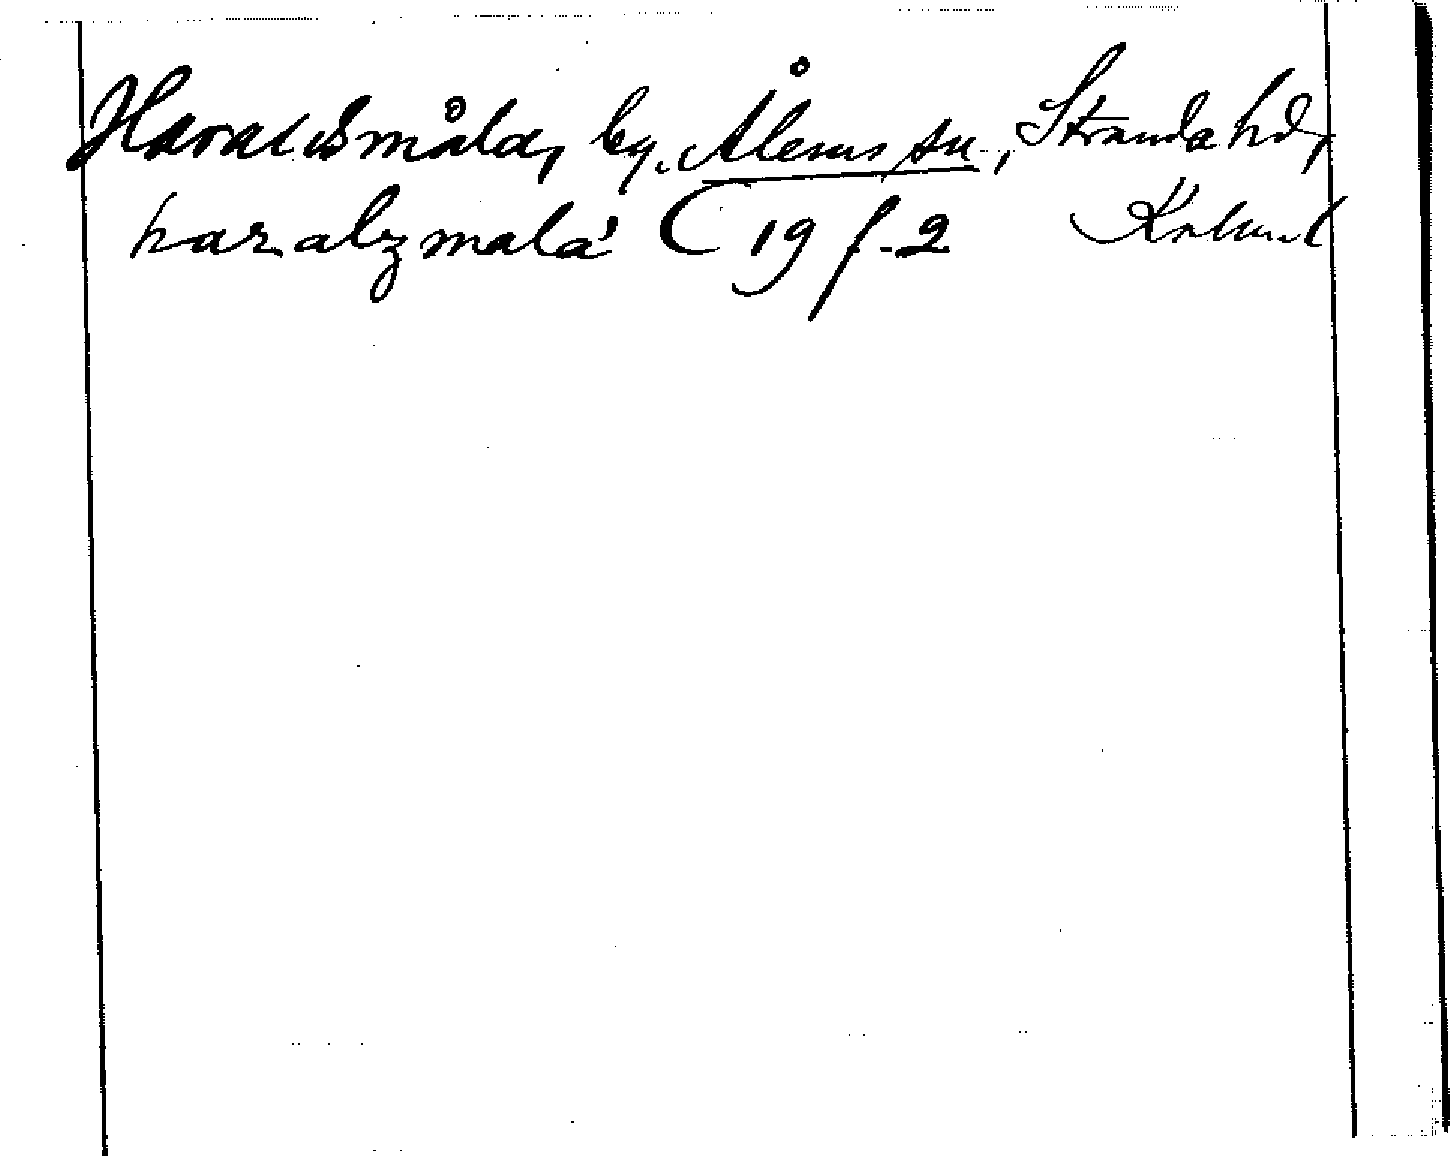 Haraldsmåla, by, Ålems sn, Stranda hd,
haralzmala C 19 f. 2 Kalm. l